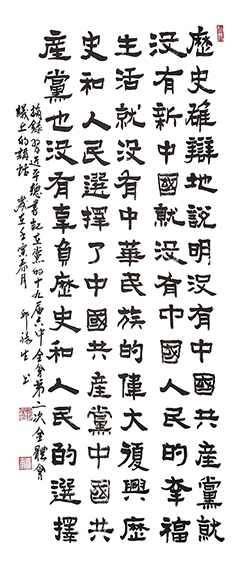 歷史雄辯地説明没有中國共產黨就
没有新中國就没有中國人民的幸福
生活就没有中華民族的偉大復興歷
史和人民選擇了中國共產黨中國共
產黨也没有辜負歷史和人民的選擇
摘錄習近平總書記在黨的十九届六中全會第二次全體會
議上的講話 歲在壬寅春月 邱